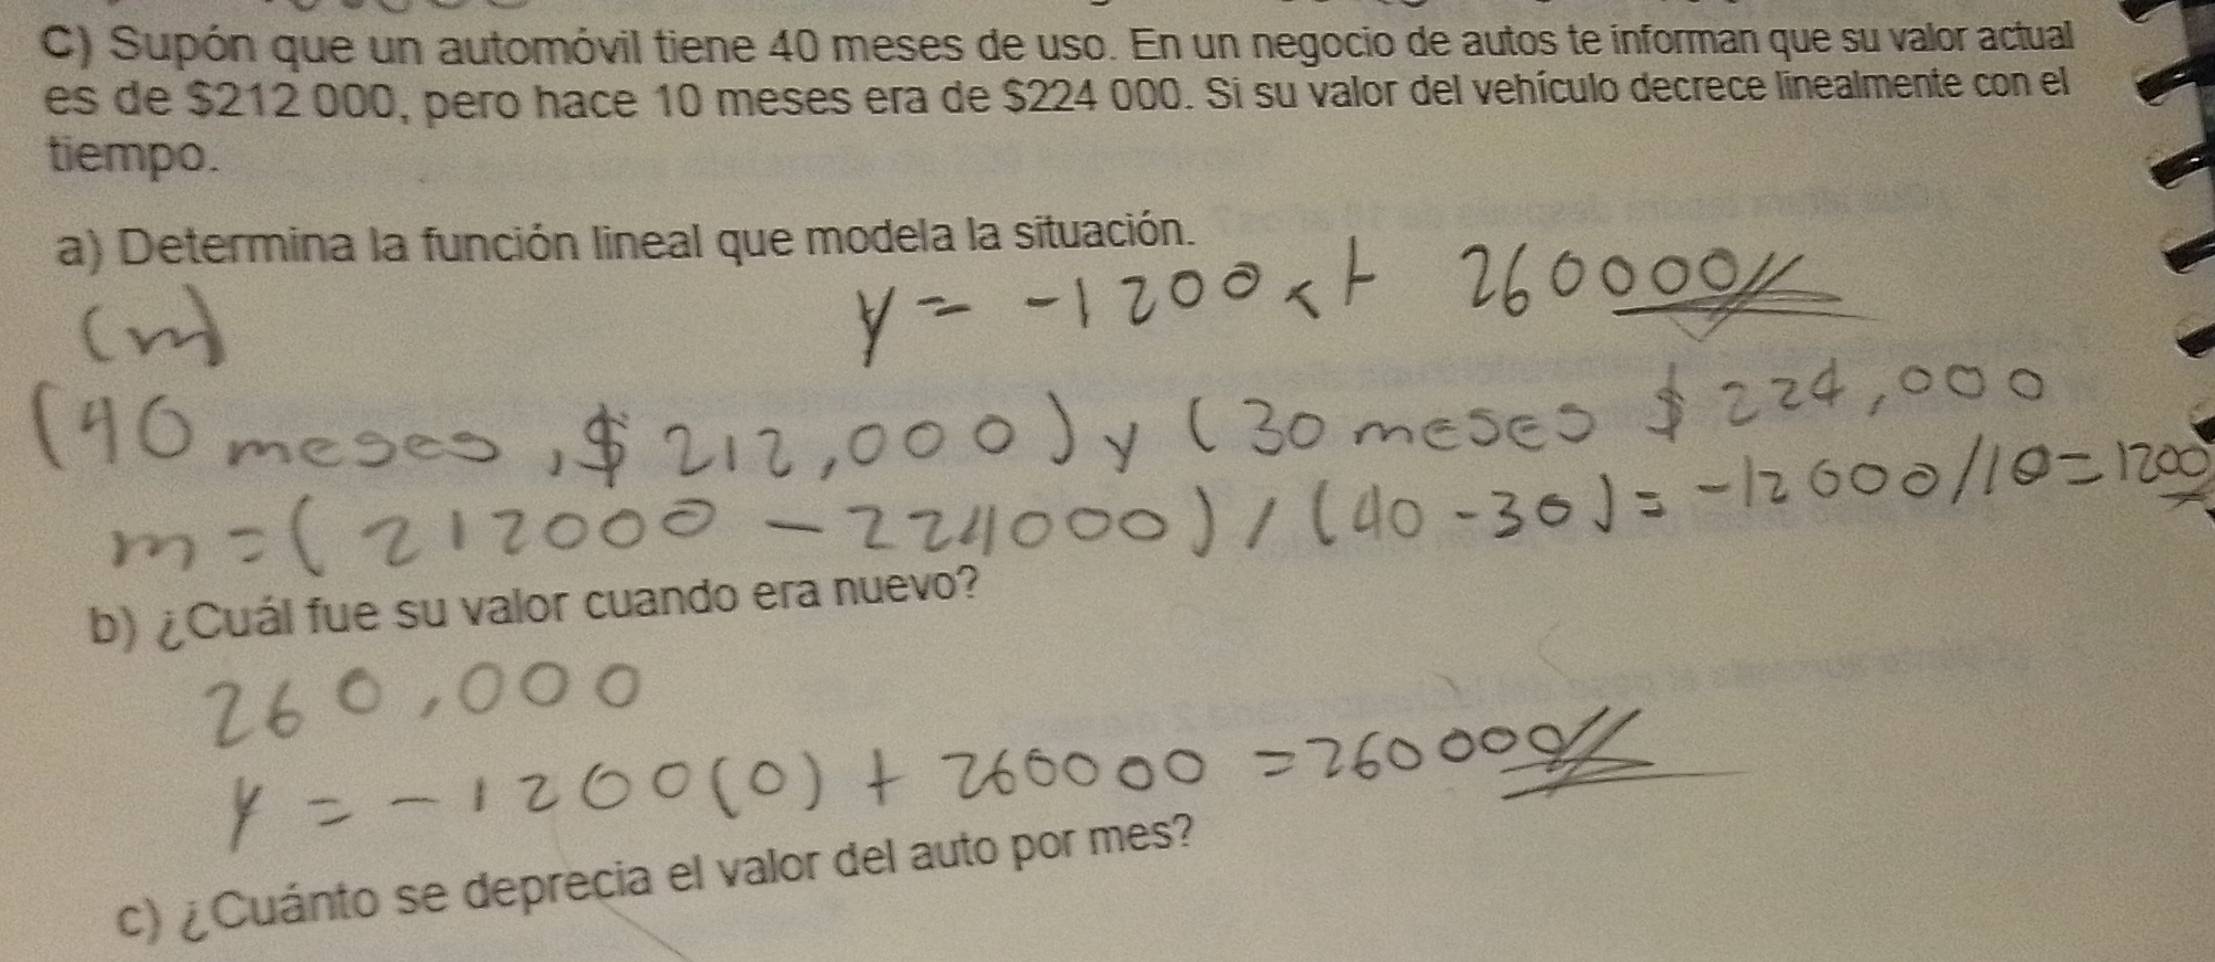 C) Supón que un automóvil tiene 40 meses de uso. En un negocio de autos te informan que su valor actual
es de $212 000, pero hace 10 meses era de $224 000. Si su valor del vehículo decrece linealmente con el
tiempo.
a) Determina la función lineal que modela la situación.
y = -1200x + 260000
(m)
(40 meses, $212,000) y (30 meses $224,000
m = (212000 - 224000) / (40-30) = -12000/10 = 1200
b) ¿Cuál fue su valor cuando era nuevo?
260,000
y = -1200(0) + 260000 = 260000
c) ¿Cuánto se deprecia el valor del auto por mes?